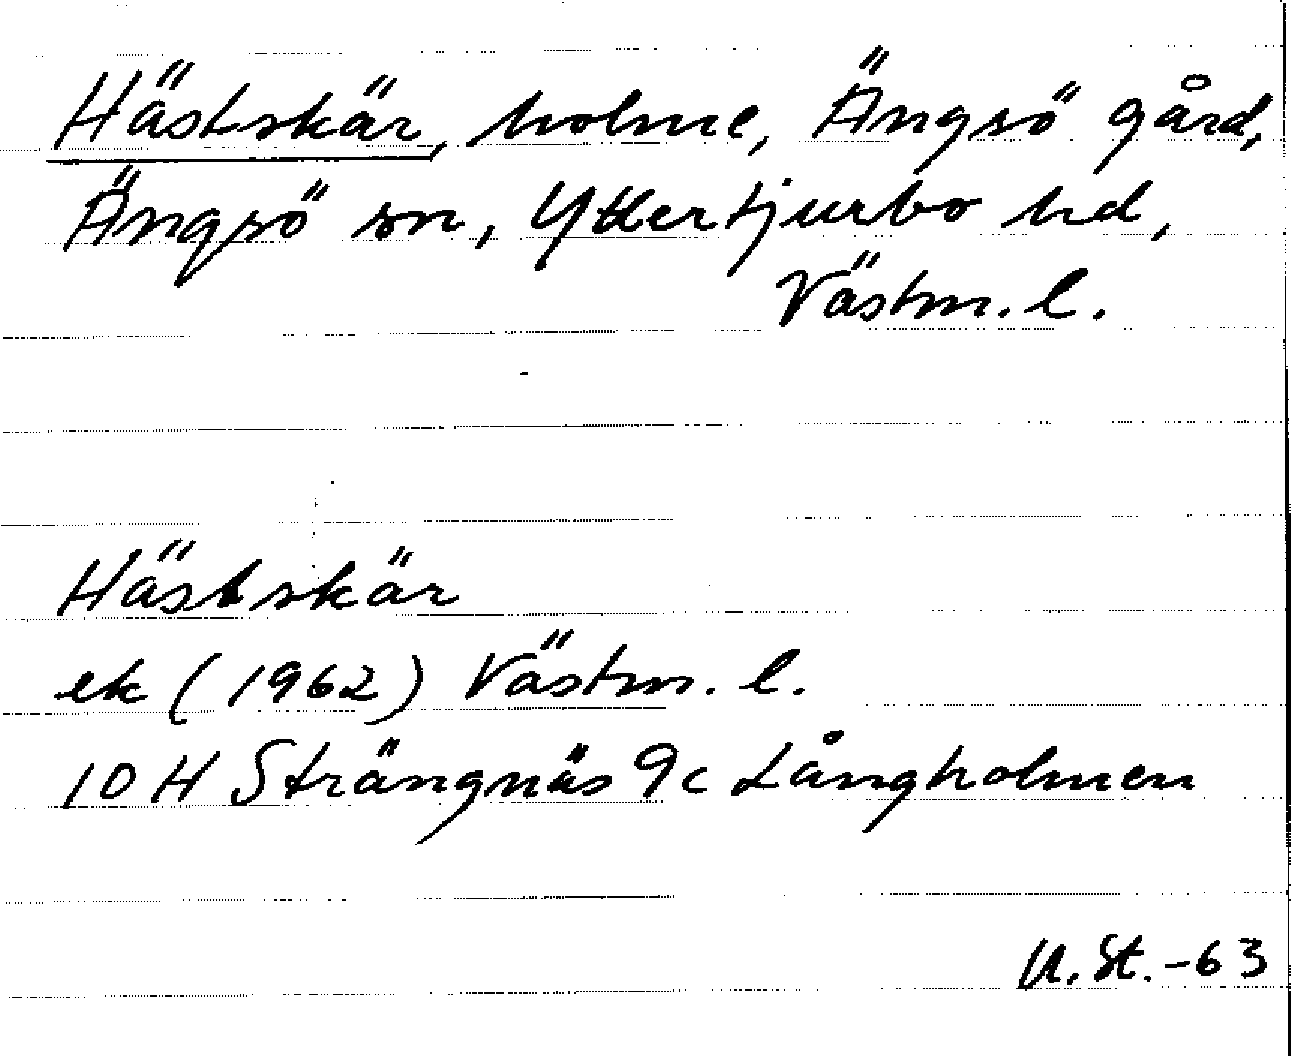 Hästskär, holme, Ängsö gård,
Ängsö sn, Yttertjurbo hd,
Västm. l.
Hästskär
ek (1962) Västm. l.
10 H Strängnäs 9c Långholmen
U. St. -63